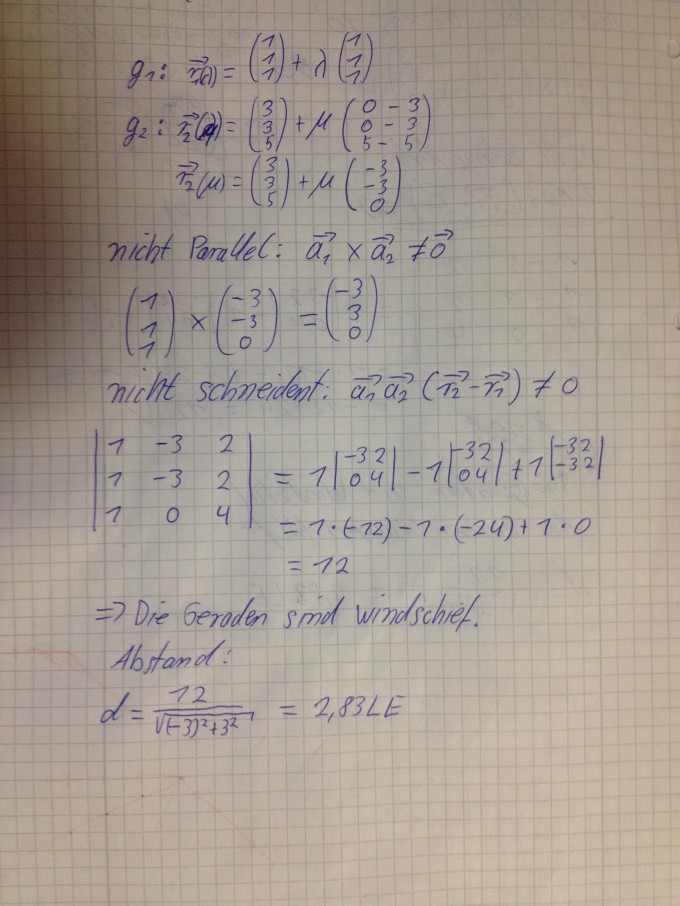 g₁: r⃗₁(λ) = (1 1 1) + λ (1 1 1)
g₂: r⃗₂(μ) = (3 3 5) + μ (0 - 3 0 - 3 5 - 5)
r⃗₂(μ) = (3 3 5) + μ (-3 -3 0)
nicht Parallel: a⃗₁ × a⃗₂ ≠ 0⃗
(1 1 1) × (-3 -3 0) = (-3 3 0)
nicht schneident: a⃗₁ a⃗₂ (r⃗₂ - r⃗₁) ≠ 0
|1 -3 2
1 -3 2
1 0 4| = 1 |-3 2 0 4| - 1 |-3 2 0 4| + 1 |-3 2 -3 2|
= 1 · (-12) - 1 · (-24) + 1 · 0
= 12
=> Die Geraden sind windschief.
Abstand:
d = 12 / √(-3)² + 3² = 2,83 LE